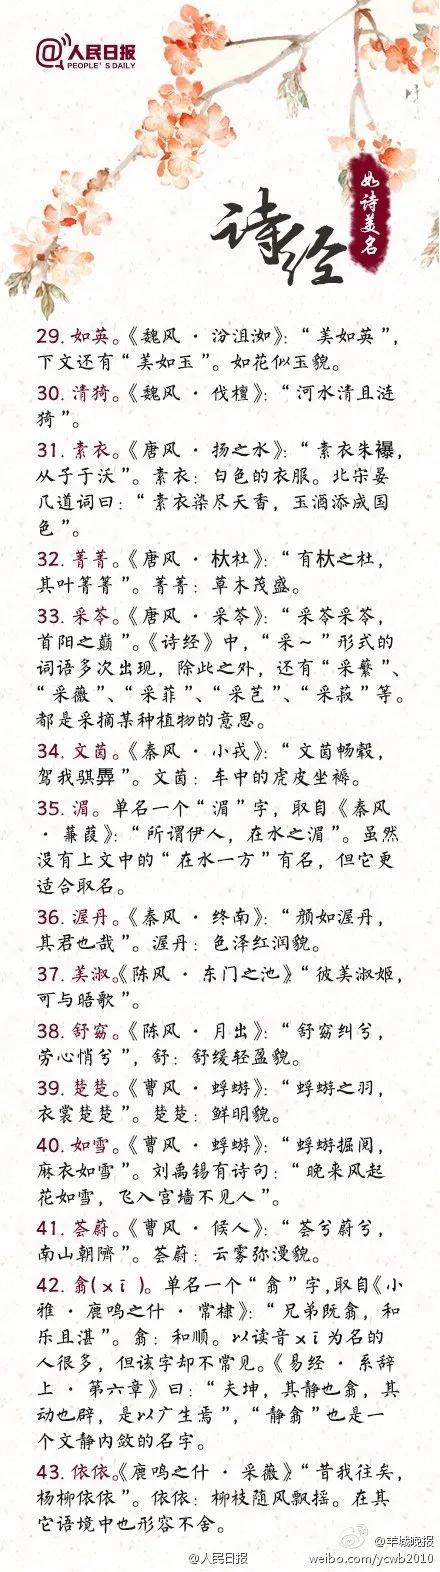 @人民日报
PEOPLE'S DAILY
如诗美名
诗经
29. 如英。《魏风·汾沮洳》：“美如英”，
下文还有“美如玉”。如花似玉貌。
30. 清猗。《魏风·伐檀》：“河水清且涟
猗”。
31. 素衣。《唐风·扬之水》：“素衣朱襮，
从子于沃”。素衣：白色的衣服。北宋晏
几道词曰：“素衣染尽天香，玉酒添成国
色”。
32. 菁菁。《唐风·杕杜》：“有杕之杜，
其叶菁菁”。菁菁：草木茂盛。
33. 采苓。《唐风·采苓》：“采苓采苓，
首阳之巅”。《诗经》中，“采～”形式的
词语多次出现，除此之外，还有“采蘩”、
“采薇”、“采菲”、“采芑”、“采菽”等。
都是采摘某种植物的意思。
34. 文茵。《秦风·小戎》：“文茵畅毂，
驾我骐馵”。文茵：车中的虎皮坐褥。
35. 湄。单名一个“湄”字，取自《秦风
·蒹葭》：“所谓伊人，在水之湄”。虽然
没有上文中的“在水一方”有名，但它更
适合取名。
36. 渥丹。《秦风·终南》：“颜如渥丹，
其君也哉”。渥丹：色泽红润貌。
37. 美淑。《陈风·东门之池》“彼美淑姬，
可与晤歌”。
38. 舒窈。《陈风·月出》：“舒窈纠兮，
劳心悄兮”，舒：舒缓轻盈貌。
39. 楚楚。《曹风·蜉蝣》：“蜉蝣之羽，
衣裳楚楚”。楚楚：鲜明貌。
40. 如雪。《曹风·蜉蝣》：“蜉蝣掘阅，
麻衣如雪”。刘禹锡有诗句：“晚来风起
花如雪，飞入宫墙不见人”。
41. 荟蔚。《曹风·候人》：“荟兮蔚兮，
南山朝隮”。荟蔚：云雾弥漫貌。
42. 翕(xī)。单名一个“翕”字，取自《小
雅·鹿鸣之什·常棣》：“兄弟既翕，和
乐且湛”。翕：和顺。以读音xī为名的
人很多，但该字却不常见。《易经·系辞
上·第六章》曰：“夫坤，其静也翕，其
动也辟，是以广生焉”，“静翕”也是一
个文静内敛的名字。
43. 依依。《鹿鸣之什·采薇》“昔我往矣，
杨柳依依”。依依：柳枝随风飘摇。在其
它语境中也形容不舍。
@人民日报
@羊城晚报
weibo.com/ycwb2010